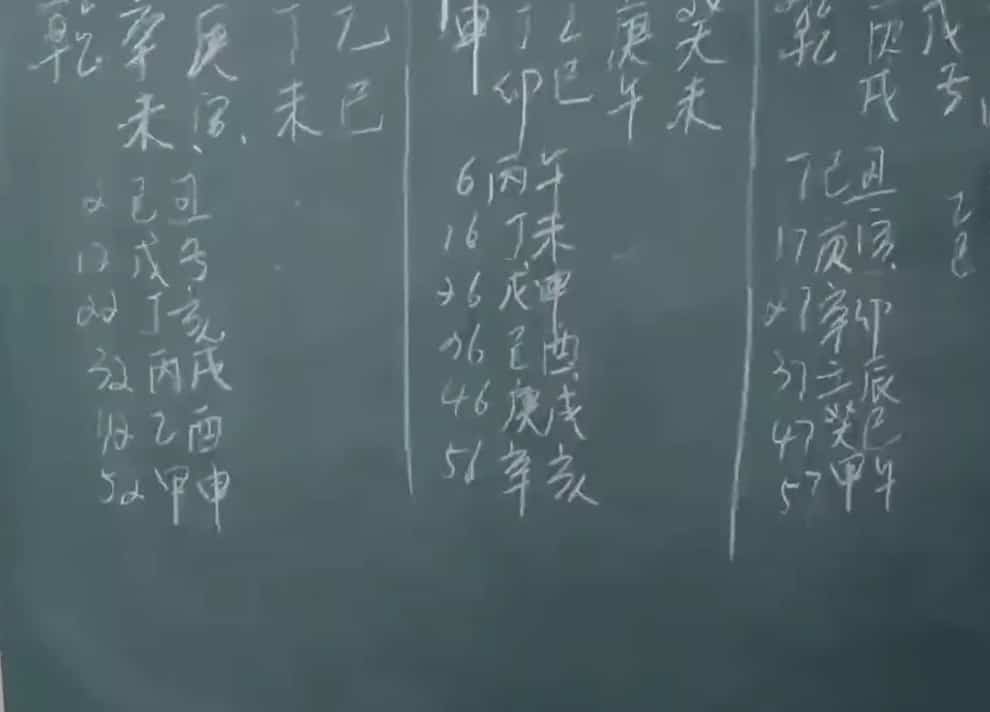 乾 辛 庚 丁 乙
未 寅 未 巳
2 己丑
12 戊子
22 丁亥
32 丙戌
42 乙酉
52 甲申
坤 丁 乙 庚 癸
卯 巳 午 未
6 丙午
16 丁未
26 戊申
36 己酉
46 庚戌
56 辛亥
乾 庚 戊
戌 子
7 己丑
17 庚寅
27 辛卯
37 壬辰
47 癸巳
57 甲午
乙
巳